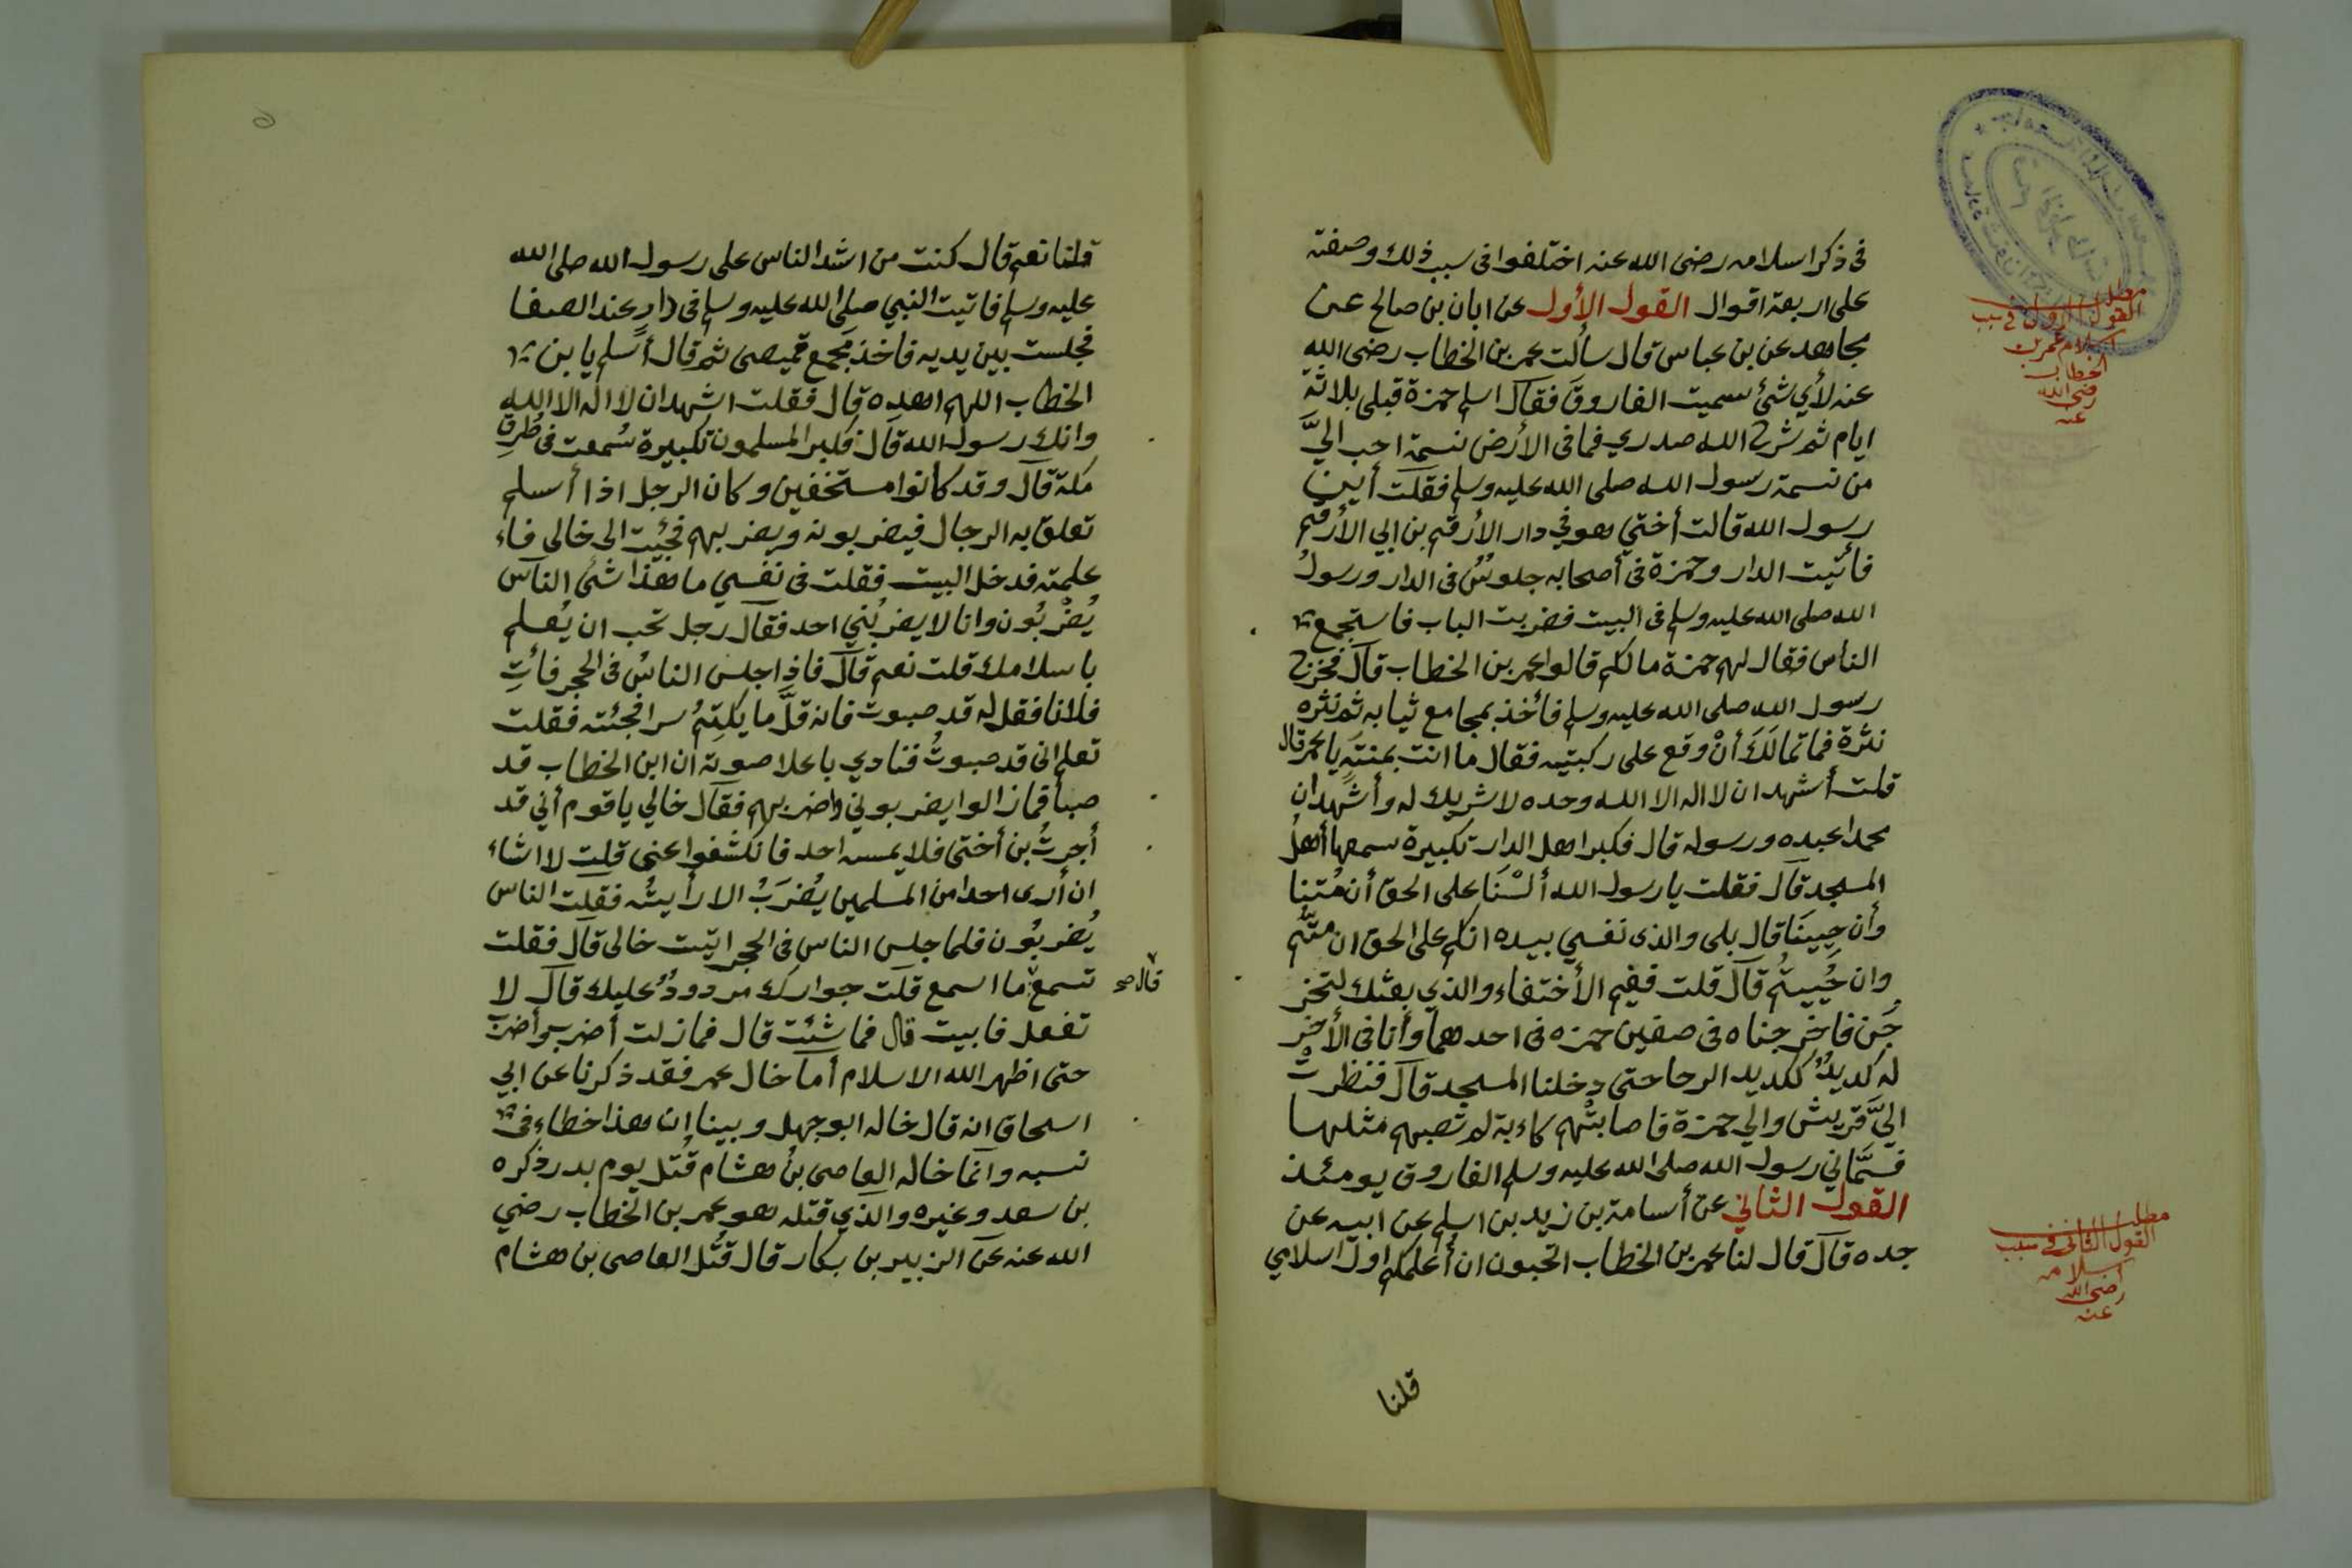 فى ذكر اسلامه رضى الله عنه اختلفوا فى سبب ذلك وصفته
على اربعة اقوال القول الأول عن ابان بن صالح عن
مجاهد عن بن عباس قال سألت عمر بن الخطاب رضى الله
عنه لأي شئ سميت الفاروق فقال اسلم حمزة قبلى بلاثة
ايام ثم شرح الله صدري فما فى الأرض نسمة احب اليَّ
من نسمة رسول الله صلى الله عليه وسلم فقلت أين
رسول الله قالت أختي هو في دار الأرقم بن ابي الأرقم
فأتيت الدار وحمزة فى أصحابه جلوسٌ فى الدار ورسولُ
الله صلى الله عليه وسلم فى البيت فضربت الباب فاستجمع
الناس فقال لهم حمزة مالكم قالوا عمر بن الخطاب قال فخرج
رسول الله صلى الله عليه وسلم فأخذ بمجامع ثيابه ثم نثره
نثرة فما تمالَكَ أنْ وقع على ركبتيه فقال ما انت بمنتهٍ يا عمر قال
قلت أشهد ان لا اله الا الله وحده لا شريك له وأشهد ان
محمدا عبده ورسوله قال فكبر اهل الدار تكبيرة سمعها أهل
المسجد قال فقلت يا رسول الله ألسْنَا على الحق أن مُتنا
وأن حِيينَا قال بلى والذى نفسي بيده انكم على الحق ان متُّم
وان حُييتُم قال قلت ففيم الأختفاء والذي بعثك لتخر
جَن فاخرجناه فى صفين حمزه فى احدهما وأنا فى الأخر
له كديدٌ ككديد الرحا حتى دخلنا المسجد قال فنظرت
اليَّ قريش والي حمزة فاصابتْهم كاءبة لم تصبهم مثلها
فسمَّاني رسول الله صلى الله عليه وسلم الفاروق يومئذ
القول الثاني عن أسامة بن زيد بن اسلم عن ابيه عن
جده قال قال لنا عمر بن الخطاب اتحبون ان أعلمكم اول اسلامي
قلنا
مطلب
القول الأول فى سبب
اسلام عمر بن
الخطاب
رضى الله
عنه
مطلب
القول الثانى فى سبب
اسلامه
رضى الله
عنه
قلنا نعم قال كنت من اشد الناس على رسول الله صلى الله
عليه وسلم فاتيت النبي صلى الله عليه وسلم فى دارٍ عند الصفا
فجلست بين يديه فاخذ بمجمع قميصى ثم قال أسلم يا بن
الخطاب اللهم اهده قال فقلت اشهد ان لا اله الا الله
وانك رسول الله قال فكبر المسلمون تكبيرة سُمعت فى طُرقِ
مكة قال وقد كانوا مستخفين وكان الرجل اذا أسلم
تعلق به الرجال فيضربونه ويضربهم فجئيت الى خالى فاء
علمته فدخل البيت فقلت فى نفسي ما هذا شئ الناس
يُضْربُون وانا لا يضربُني احد فقال رجل تحب ان يُعلم
باسلامك قلت نعم قال فاذا جلس الناسُ فى الحجر فأتِ
فلانا فقل له قد صبوت فانه قلَّ ما يكتِمُ سرا فجئته فقلت
تعلم انى قد صبوتُ فنادي باعلا صوته ان ابن الخطاب قد
صبأ فمازالوا يضربوني واضربهم فقال خالي يا قوم أني قد
أجرتُ بن أختى فلا يمسه احد فانكشفوا عنى قلت لا اشاء
ان أرى احدا من المسلمين يُضرَبُ الا رأيتُه فقلت الناس
يُضربُون فلما جلس الناس فى الحجر اتيت خالى قال فقلت
تسمع ما اسمع قلت جوارك مردودٌ عليك قال لا
قال صح
تفعل فابيت قال فما شئت قال فمازلت أضرب وأضرب
حتى اظهر الله الاسلام أما خال عمر فقد ذكرنا عن ابي
اسحاق انه قال خاله ابو جهل وبينا ان هذا خطاء فى
نسبه وانما خاله العاصى بنُ هشام قُتل يوم بدر ذكره
بن سعد وغيره والذي قتله هو عمر بن الخطاب رضي
الله عنه عن الزبير بن بكار قال قُتل العاصى بن هشام